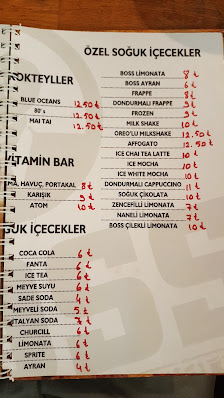 KOKTEYLLER
BLUE OCEANS 12.50 ₺
80's 12.50 ₺
MAI TAI 12.50 ₺
VİTAMİN BAR
HAVUÇ, PORTAKAL 8 ₺
KARIŞIK 9 ₺
ATOM 10 ₺
ĞUK İÇECEKLER
COCA COLA 6 ₺
FANTA 6 ₺
ICE TEA 6 ₺
MEYVE SUYU 6 ₺
SADE SODA 4 ₺
MEYVELİ SODA 5 ₺
İTALYAN SODA 7 ₺
CHURCILL 6 ₺
LİMONATA 6 ₺
SPRITE 6 ₺
AYRAN 4 ₺
ÖZEL SOĞUK İÇECEKLER
BOSS LİMONATA 8 ₺
BOSS AYRAN 6 ₺
FRAPPE 8 ₺
DONDURMALI FRAPPE 9 ₺
FROZEN 9 ₺
MILK SHAKE 10 ₺
OREO'LU MILKSHAKE 12.50 ₺
AFFOGATO 12.50 ₺
ICE CHAI TEA LATTE 10 ₺
ICE MOCHA 10 ₺
ICE WHITE MOCHA 10 ₺
DONDURMALI CAPPUCCINO 11 ₺
SOĞUK ÇİKOLATA 10 ₺
ZENCEFİLLİ LİMONATA 7 ₺
NANELİ LİMONATA 7 ₺
BOSS ÇİLEKLİ LİMONATA 10 ₺